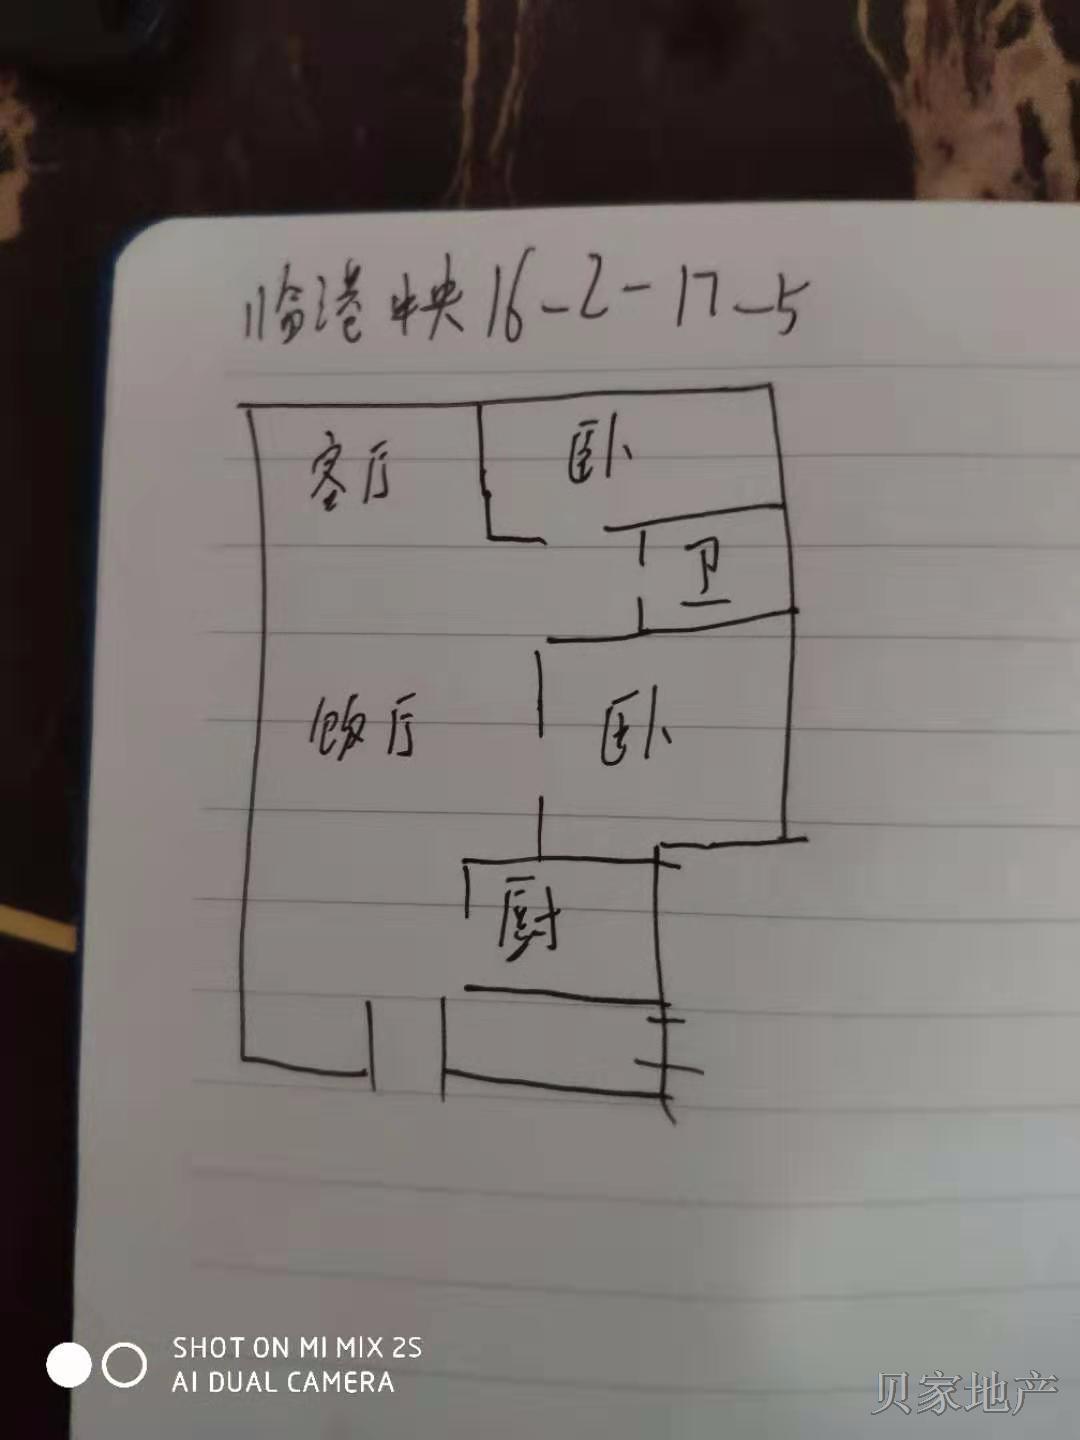 临港中央16-2-17-5
客厅 卧
卫
饭厅 卧
厨
SHOT ON MI MIX 2S
AI DUAL CAMERA
贝家地产